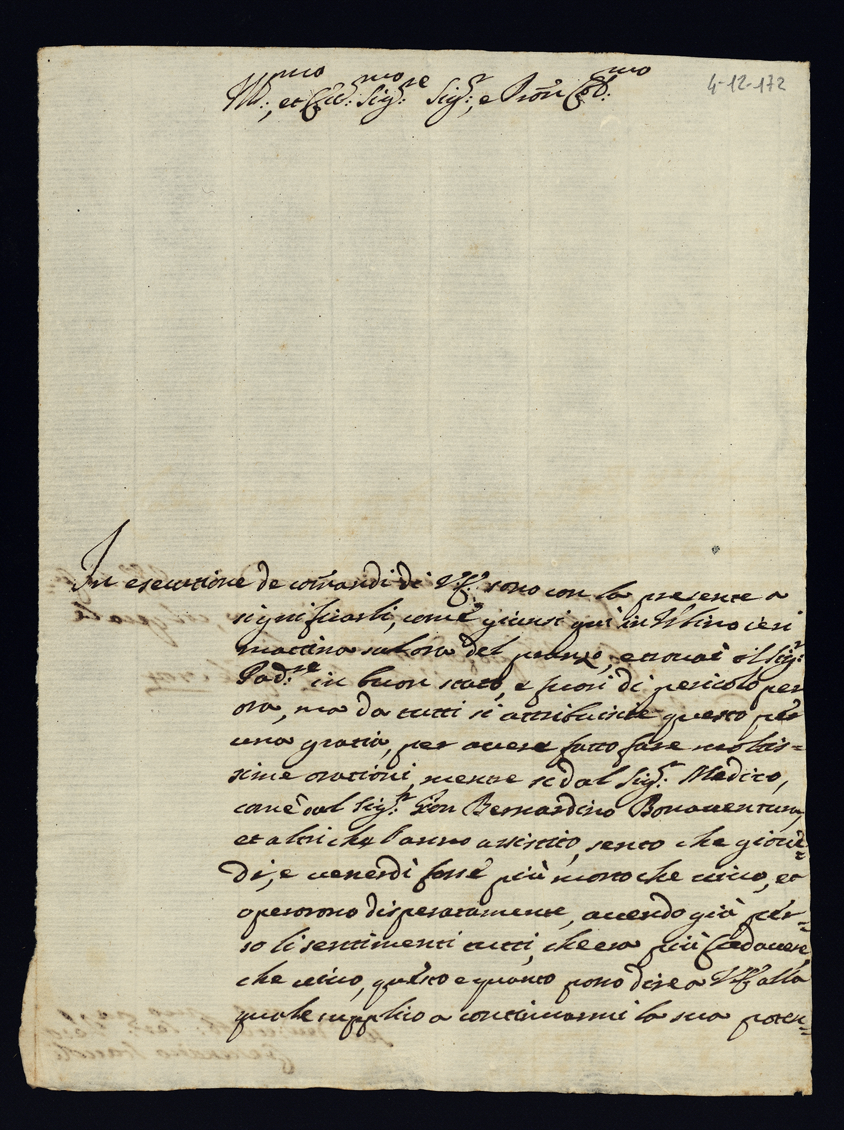 Ill:mo, et Ecc:mo Sig:re Sig:r, e Pron Col:mo
4-12-172
In esecutione de comandi di VS: sono con la presente a
significarli, come giunsi qui in Urbino ieri
mattina sul ora del pranzo, e trovai il Sig:r
Pad:re in buon stato, e fuori di pericolo per
ora, ma da tutti si attribuisce questo per
una gratia, per avere fatto fare moltis=
sime orationi, mentre sì dal Sig:r Medico,
com'è dal Sig:r Don Bernardino Bonaventura,
et altri che l'anno assistito, sento che giove=
dì, e venerdì fosse più morto che vivo, et
operorono disperatamente, avendo già per=
so li sentimenti tutti, che era più Cadavere,
che vivo, questo e quanto posso dire a VS: alla
quale supplico a continuarmi la sua poten=